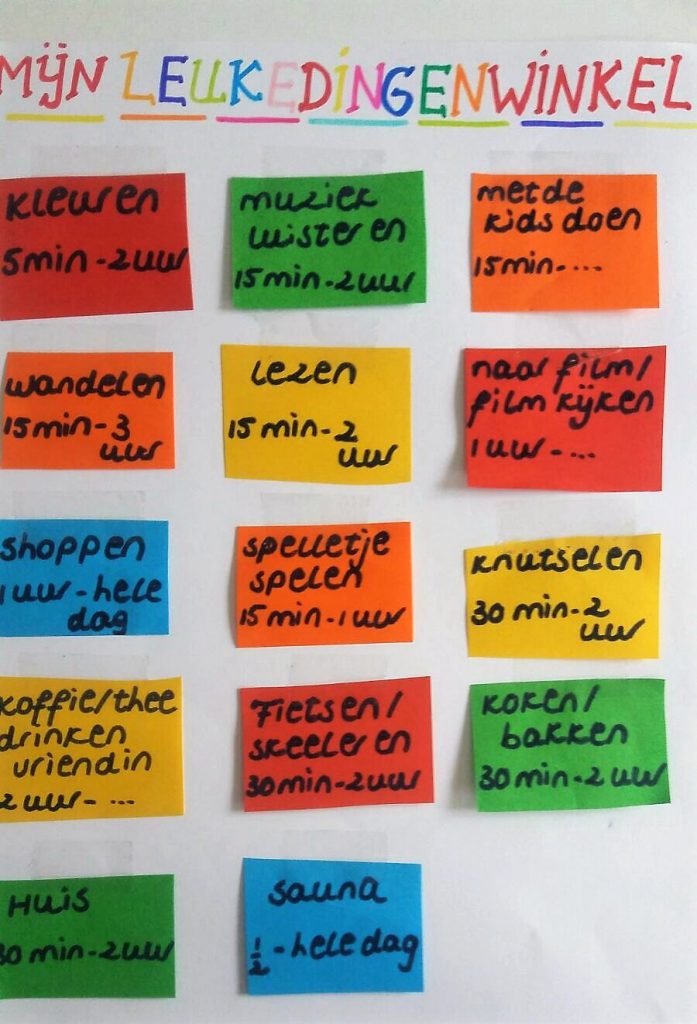 MIJN LEUKEDINGENWINKEL
kleuren
5min - 2uur
muziek
luisteren
15min - 2uur
met de
kids doen
15min - ...
wandelen
15min - 3
uur
lezen
15 min - 2
uur
naar film/
film kijken
1 uur - ...
shoppen
1 uur - hele
dag
spelletje
spelen
15min - 1 uur
knutselen
30 min - 2
uur
koffie/thee
drinken
vriendin
2 uur - ...
Fietsen/
skeeleren
30min - 2uur
koken/
bakken
30 min - 2 uur
HUIS
30 min - 2uur
sauna
½ - hele dag